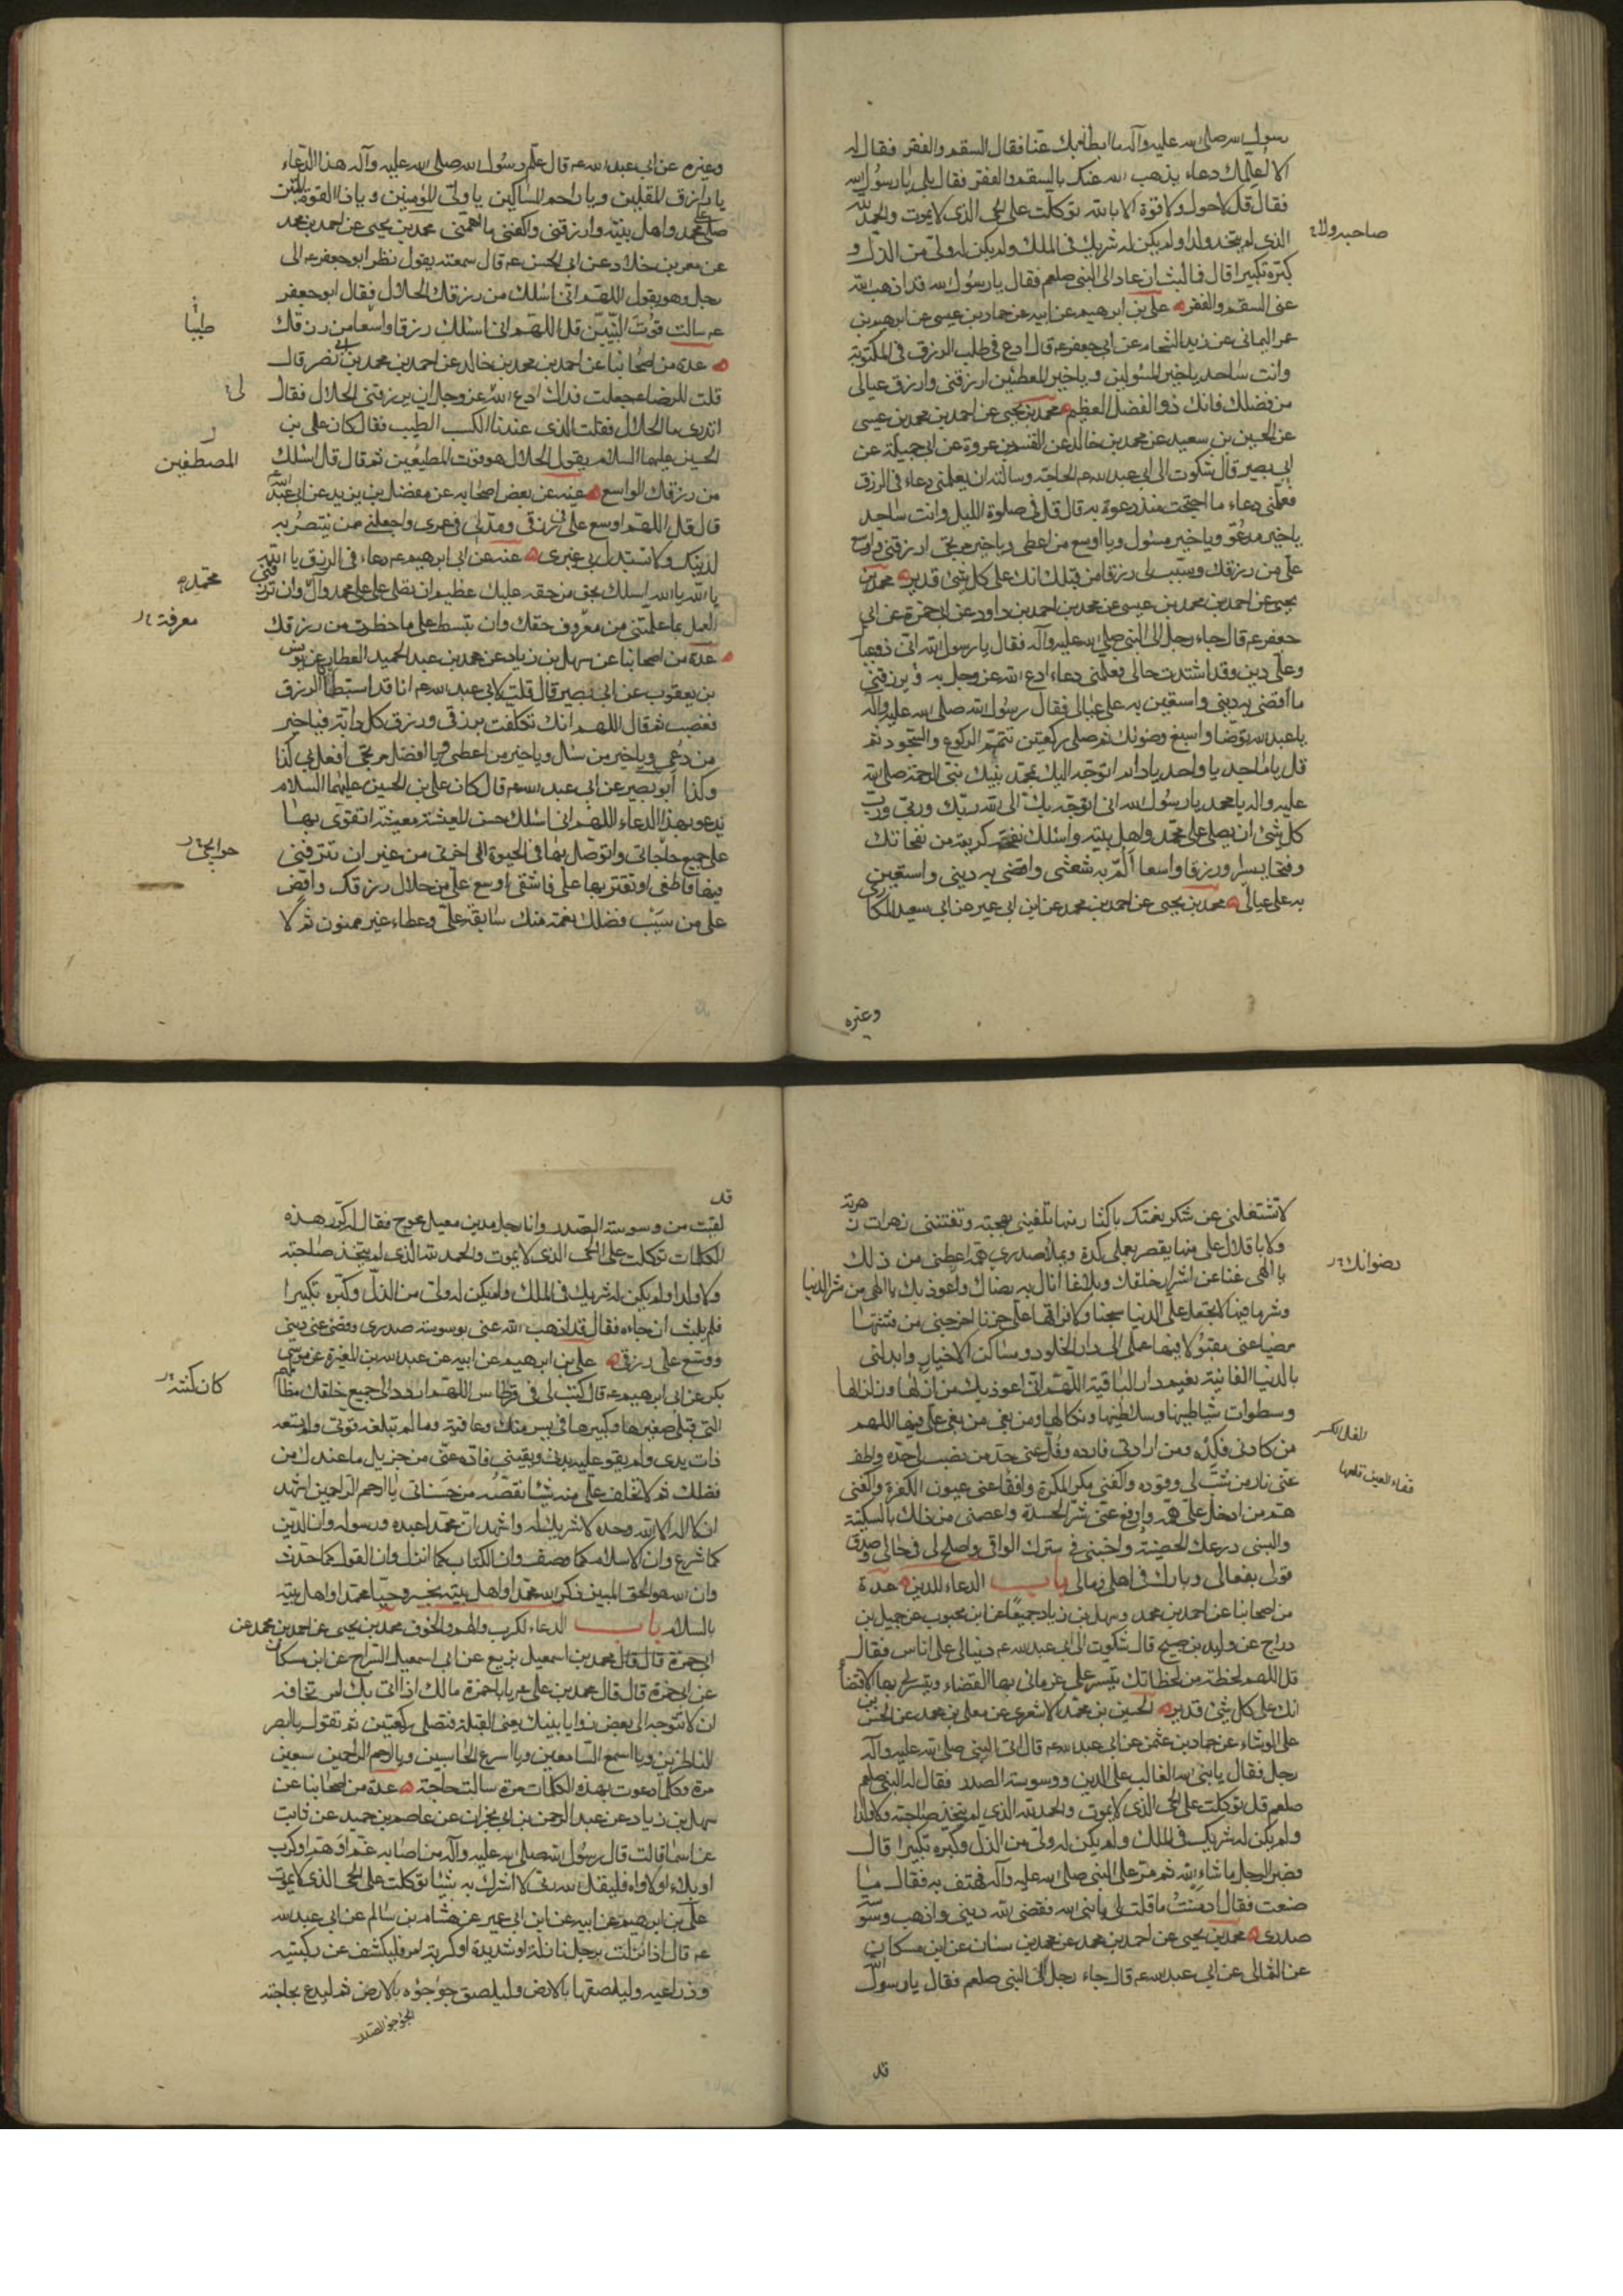 رسول الله صلى الله عليه وآله ما ابطأ بك عنا فقال السقم والفقر فقال له
الا اعلمك دعاء يذهب الله عنك بالسقم والفقر فقال بلى يا رسول الله
فقال قل لاحول ولا قوة الا بالله توكلت على الحي الذي لا يموت والحمد لله
الذي لم يتخذ ولدا ولم يكن له شريك في الملك ولم يكن له ولي من الذل و
صاحبه ولا
كبره تكبيرا قال فما لبث ان عاد الى النبي صلعم فقال يا رسول الله قد اذهب الله
عني السقم والفقر علي بن ابرهيم عن ابيه عن حماد بن عيسى عن ابرهيم بن
عمر اليماني عن زيد الشحام عن ابي جعفر عه قال ادع في طلب الرزق في المكتوبة
وانت ساجد يا خير المسئولين ويا خير المعطين ارزقني وارزق عيالي
من فضلك فانك ذو الفضل العظيم محمد بن يحيى عن احمد بن محمد بن عيسى
عن الحسين بن سعيد عن محمد بن خالد عن القسم بن عروة عن ابي جميلة عن
ابي بصير قال شكوت الى ابي عبد الله عه الحاجة وسألته ان يعلمني دعاء في الرزق
فعلمني دعاء ما احتجت منذ دعوة به قال قل في صلوة الليل وانت ساجد
يا خير مدعو ويا خير مسئول ويا اوسع من اعطى ويا خير مرتجى ارزقني واوسع
علي من رزقك وسبب لي رزقا من قبلك انك على كل شئ قدير محمد بن
يحيى عن احمد بن محمد بن عيسى عن محمد بن احمد بن داود عن ابي حمزة عن ابي
جعفر عه قال جاء رجل الى النبي صلى الله عليه وآله فقال يا رسول الله اني ذو عيال
وعلي دين وقد اشتدت حالي فعلمني دعاء ادع الله عز وجل به يرزقني
ما اقضي به ديني واستعين به على عيالي فقال رسول الله صلى الله عليه وآله
يا عبد الله توضا واسبغ وضوئك ثم صلي ركعتين تتم الركوع والسجود ثم
قل يا ماجد يا واحد يا دائم اتوجه اليك بمحمد نبيك نبي الرحمة صلى الله
عليه واله يا محمد يا رسول الله اني اتوجه بك الى الله ربك وربي ورب
كل شئ ان يصلي على محمد واهل بيته واسئلك نفحة كريمة من نفحاتك
وفتحا يسيرا ورزقا واسعا ألم به شعثي واقضي به ديني واستعين
به على عيالي محمد بن يحيى عن احمد بن محمد عن ابن ابي عمير عن ابي سعيد المكاري
وغيره
وغيره عن ابي عبد الله عه قال علم رسول الله صلى الله عليه وآله هذا الدعاء
يا رازق المقلين ويا راحم المساكين يا ولي المؤمنين ويا ذا القوة المتين
صل على محمد واهل بيته وارزقني واكفني ما اهمني محمد بن يحيى عن احمد بن محمد
عن معمر بن خلاد عن ابي الحسن عه قال سمعته يقول نظر ابو جعفر عه الى
رجل وهو يقول اللهم اني اسئلك من رزقك الحلال فقال ابو جعفر
عه سالت قوت النبيين قل اللهم اني اسئلك رزقا واسعا من رزقك
طيبا
عدة من اصحابنا عن احمد بن محمد بن خالد عن احمد بن محمد بن ابي نصر قال
قلت للرضا عه جعلت فداك ادع الله عز وجل ان يرزقني الحلال فقال
لي
اتدري ما الحلال فقلت الذي عندنا الكسب الطيب فقال كان علي بن
الحسين عليهما السلام يقول الحلال هو قوت المطيعين ثم قال قل اسئلك
المصطفين
من رزقك الواسع عنه عن بعض اصحابه عن مفضل بن يزيد عن ابي عبد الله
قال قل اللهم اوسع علي في رزقي ومد لي في عمري واجعلني ممن ينتصر به
لدينك ولا تستبدل بي غيري عنه عن ابي ابرهيم عه دعاء في الرزق يا الله
يا الله يا الله اسئلك بحق من حقه عليك عظيم ان تصلي على محمد وآل وان ترزقني
محمد
العمل بما علمتني من معروف حقك وان تبسط علي ما حظرت من رزقك
معرفة
عدة من اصحابنا عن سهل بن زياد عن محمد بن عبد الحميد العطار عن يونس
بن يعقوب عن ابي بصير قال قلت لابي عبد الله عه انا قد استبطأنا الرزق
فغضب ثم قال اللهم انك تكفلت برزقي ورزق كل دابة فيا خير
من دعي ويا خير من سئل ويا خير من اعطى ويا افضل مرتجى افعل بي كذا
وكذا ابو بصير عن ابي عبد الله عه قال كان علي بن الحسين عليهما السلام
يدعو بهذا الدعاء اللهم اني اسئلك حسن المعيشة معيشة اتقوى بها
على جميع حاجاتي واتوصل بها في الحيوة الى اخرتي من غير ان تترفني
حوائجي
فيها فاطغى او تقتر بها علي فاشقى اوسع علي من حلال رزقك وافض
علي من سيب فضلك نعمة منك سابغة علي وعطاء غير ممنون ثم لا
لا تشغلني عن شكر نعمتك باكثار منها تلهيني بهجته وتفتنني زهرات
ولا باقلال علي منها يقصر بعملي كده ويملأ صدري همه اعطني من ذلك
يا الهي غنا عن اشرار خلقك وبلاغا أنال به رضاك واعوذ بك يا الهي من شر الدنيا
رضوانك
وشر ما فيها لا تجعل علي الدنيا سجنا ولا فراقها علي حزنا اخرجني من فتنتها
مرضيا عني مقبولا فيها عملي الى دار الخلود ومساكن الاخيار وابدلني
بالدنيا الفانية نعيم دار الباقية اللهم اني اعوذ بك من ازلها وزلزالها
وسطوات شياطينها وسلاطينها ونكالها ومن بغي من بغى علي فيها اللهم
من كادني فكده ومن ارادني فارده وفل عني حد من نصب لي حده واطف
عني نار من شب لي وقوده واكفني مكر المكرة وافقأ عني عيون الكفرة واكفني
فقاء العين قلعها
هم من ادخل علي همه وادفع عني شر الحسدة واعصمني من ذلك بالسكينة
والبسني درعك الحصينة واخبني في سترك الواقي واصلح لي في حالي وصدق
قولي بفعالي وبارك في اهلي ومالي باب الدعاء للدين عدة
من اصحابنا عن احمد بن محمد وسهل بن زياد جميعا عن ابن محبوب عن جميل بن
دراج عن وليد بن صبيح قال شكوت الى ابي عبد الله عه دينا لي على اناس فقال
قل اللهم لحظة من لحظاتك تيسر على غرمائي بها القضاء وتيسر لي بها الاقتضاء
انك على كل شئ قدير الحسين بن محمد الاشعري عن معلى بن محمد عن الحسن بن
علي الوشاء عن حماد بن عثمن عن ابي عبد الله عه قال اتى النبي صلى الله عليه وآله
رجل فقال يا نبي الله الغالب علي الدين ووسوسة الصدر فقال له النبي صلعم
صلعم قل توكلت على الحي الذي لا يموت والحمد لله الذي لم يتخذ صاحبة ولا ولدا
ولم يكن له شريك في الملك ولم يكن له ولي من الذل وكبره تكبيرا قال
فصبر الرجل ما شاء الله ثم مر على النبي صلى الله عليه وآله فهتف به فقال ما
صنعت فقال ادمنت ما قلت لي يا نبي الله فقضى الله ديني واذهب وسوسة
صدري محمد بن يحيى عن احمد بن محمد عن محمد بن سنان عن ابن مسكان
عن الثمالي عن ابي عبد الله عه قال جاء رجل الى النبي صلعم فقال يا رسول الله
قد
قد
لقيت من وسوسة الصدر وانا رجل مدين معيل محوج فقال له كرر هذه
الكلمات توكلت على الحي الذي لا يموت والحمد لله الذي لم يتخذ صاحبة
ولا ولدا ولم يكن له شريك في الملك ولم يكن له ولي من الذل وكبره تكبيرا
فلم يلبث ان جاءه فقال قد اذهب الله عني بوسوسة صدري وقضى عني ديني
ووسع علي رزقي علي بن ابرهيم عن ابيه عن عبد الله بن المغيرة عن موسى
بكر عن ابي ابرهيم عه قال كتب لي في قرطاس اللهم اردد الى جميع خلقك مظالمهم
كان كتبه
التي قبلي صغيرها وكبيرها في يسر منك وعافية وما لم تبلغه قوتي ولم تسعه
ذات يدي ولم يقو عليه بدني ويقيني فاده عني من جزيل ما عندك من
فضلك ثم لا تخلف علي منه شيئا تقصه من حسناتي يا ارحم الراحمين اشهد
ان لا اله الا الله وحده لا شريك له واشهد ان محمدا عبده ورسوله وان الدين
كما شرع وان الاسلام كما وصف وان الكتاب كما انزل وان القول كما حدث
وان الله هو الحق المبين ذكر الله محمدا واهل بيته بخير وحيا محمدا واهل بيته
بالسلام باب الدعاء لكرب والهم والخوف محمد بن يحيى عن احمد بن محمد عن
ابي حمزة قال قال محمد بن اسمعيل بزيع عن ابي اسمعيل السراج عن ابن مسكان
عن ابي حمزة قال قال محمد بن علي عه يا با حمزة مالك اذا اتى بك امر تخافه
ان لا تتوجه الى بعض زوايا بيتك يعني القبلة فتصلي ركعتين ثم تقول يا ابصر
الناظرين ويا اسمع السامعين ويا اسرع الحاسبين ويا ارحم الراحمين سبعين
مرة وكلما دعوت بهذه الكلمات مرة سالت حاجة عدة من اصحابنا عن
سهل بن زياد عن عبد الرحمن بن ابي نجران عن عاصم بن حميد عن ثابت
عن اسما قالت قال رسول الله صلى الله عليه وآله من اصابه غم او هم او كرب
او بلاء او لاواء فليقل الله ربي لا اشرك به شيئا توكلت على الحي الذي لا يموت
علي بن ابرهيم عن ابيه عن ابن ابي عمير عن هشام بن سالم عن ابي عبد الله
عه قال اذا نزلت برجل نازلة او شديدة او كربة امر فليكشف عن ركبتيه
وذراعيه وليلصقها بالارض وليلصق جؤجؤه بالارض ثم ليدع بحاجته
الجؤجؤ الصدر